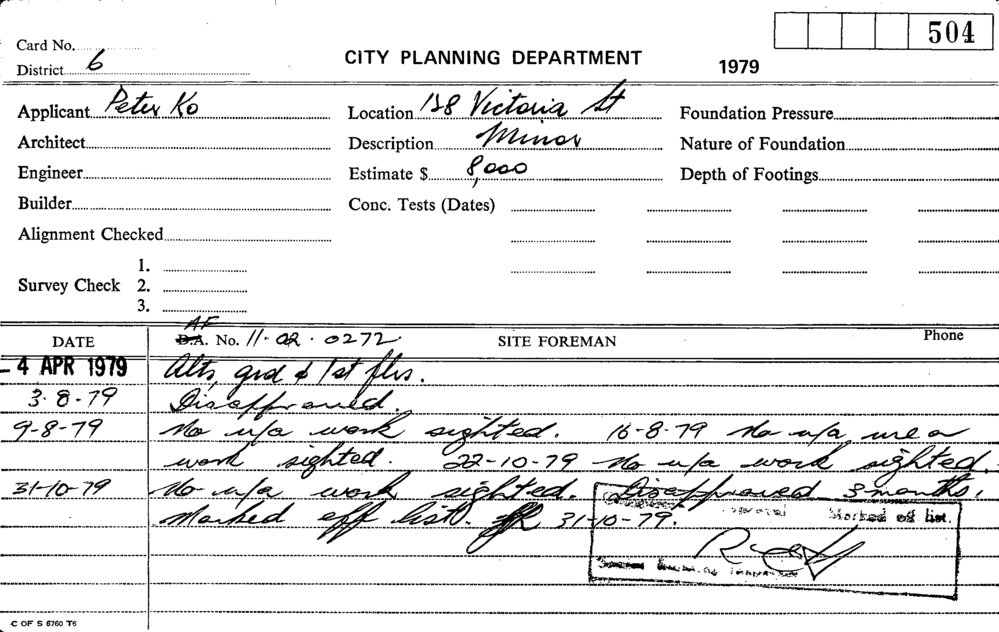 504
Card No.
District 6
CITY PLANNING DEPARTMENT
1979
Applicant Peter Ko
Location 138 Victoria St
Foundation Pressure
Architect
Description Minor
Nature of Foundation
Engineer
Estimate $ 8,000
Depth of Footings
Builder
Conc. Tests (Dates)
Alignment Checked
Survey Check 1.
2.
3.
DATE
AF
D.A. No. 11.02.0272
SITE FOREMAN
Phone
4 APR 1979 Alts, grd & 1st flrs.
3.8-79 Disapproved.
9-8-79 No u/a work sighted. 16-8-79 No u/a, use or
work sighted. 22-10-79 No u/a work sighted.
31-10-79 No u/a work sighted. Disapproved 3 months.
Marked off list. 31-10-79.
Marked off list.
C OF S 6760 T6